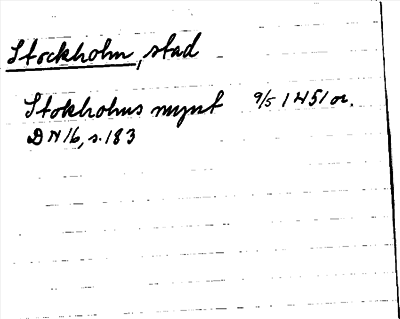 Stockholm, stad
Stokholms mynt 9/5 1451 or.
DN 16, s. 183